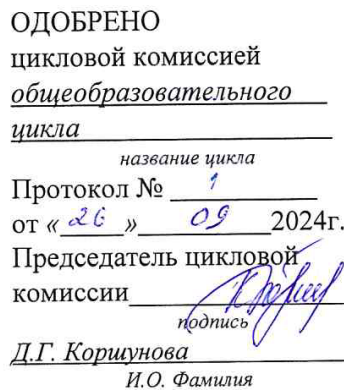 ОДОБРЕНО
цикловой комиссией
общеобразовательного
цикла
название цикла
Протокол № 1
от « 26 » 09 2024г.
Председатель цикловой
комиссии
подпись
Д.Г. Коршунова
И.О. Фамилия